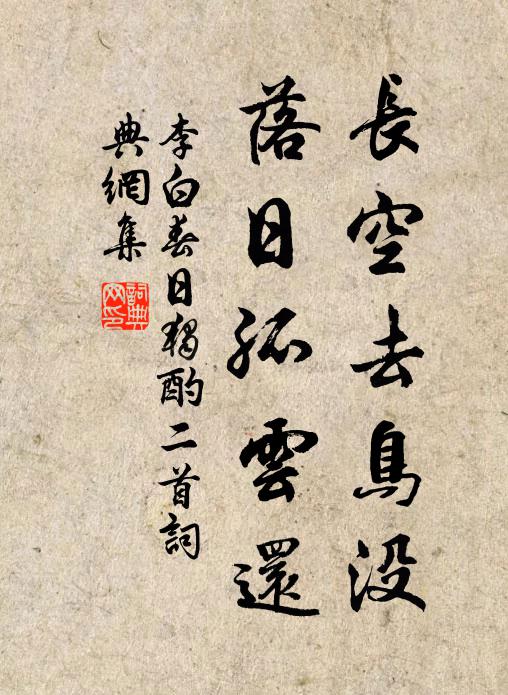 長空去鳥没
落日孤雲還
李白春日獨酌二首詞
典網集
詞典
网印